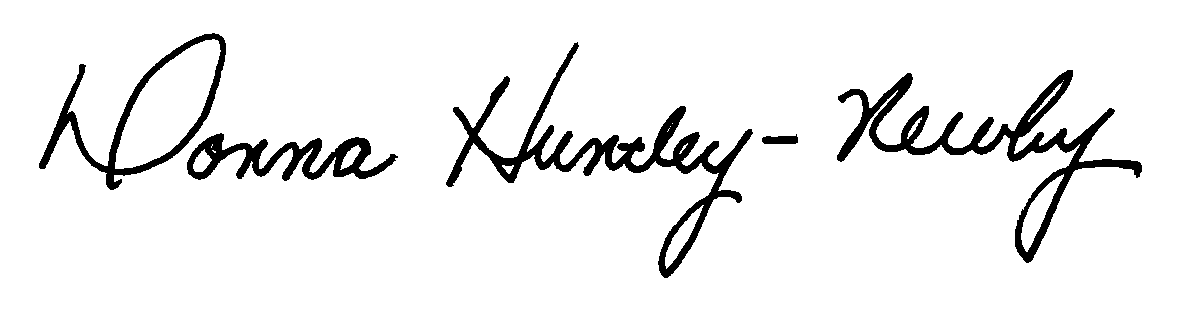 Donna Huntley-Newby